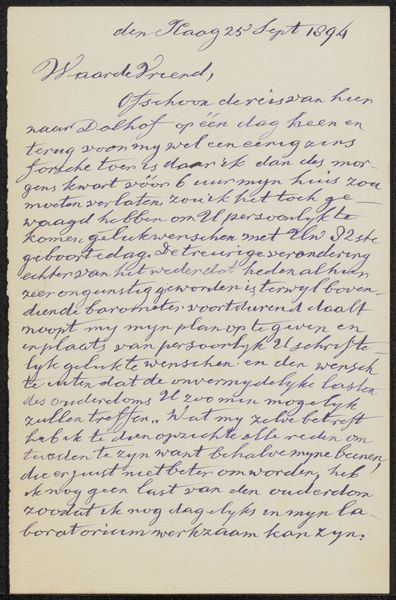 den Haag 25 Sept 1894
Waarde Vriend,
Ofschoon de reis van hier
naar Dalhof op één dag heen en
terug voor my wel een eenigzins
forsche toer is daar ik dan des mor-
gens kwart vóór 6 uur myn huis zou
moeten verlaten, zou ik het toch ge-
waagd hebben om U persoonlyk te
komen gelukwenschen met Uw 82ste
geboortedag. De treurige verandering
echter van het weder dat heden alhier
zeer ongunstig geworden is terwyl boven-
dien de barometer voortdurend daalt
noopt my myn plan op te geven en
in plaats van persoonlyk U schrifte-
lyk geluk te wenschen en den wensch
te uiten dat de onvermydelyke lasten
des ouderdoms U zoo min mogelyk
zullen treffen. Wat my zelve betreft
heb ik te dien opzichte alle reden om
tevreden te zyn want behalve myne beenen,
die er juist niet beter om worden, heb
ik nog geen last van den ouderdom
zoodat ik nog dagelyks in myn la-
boratorium werkzaam kan zyn.